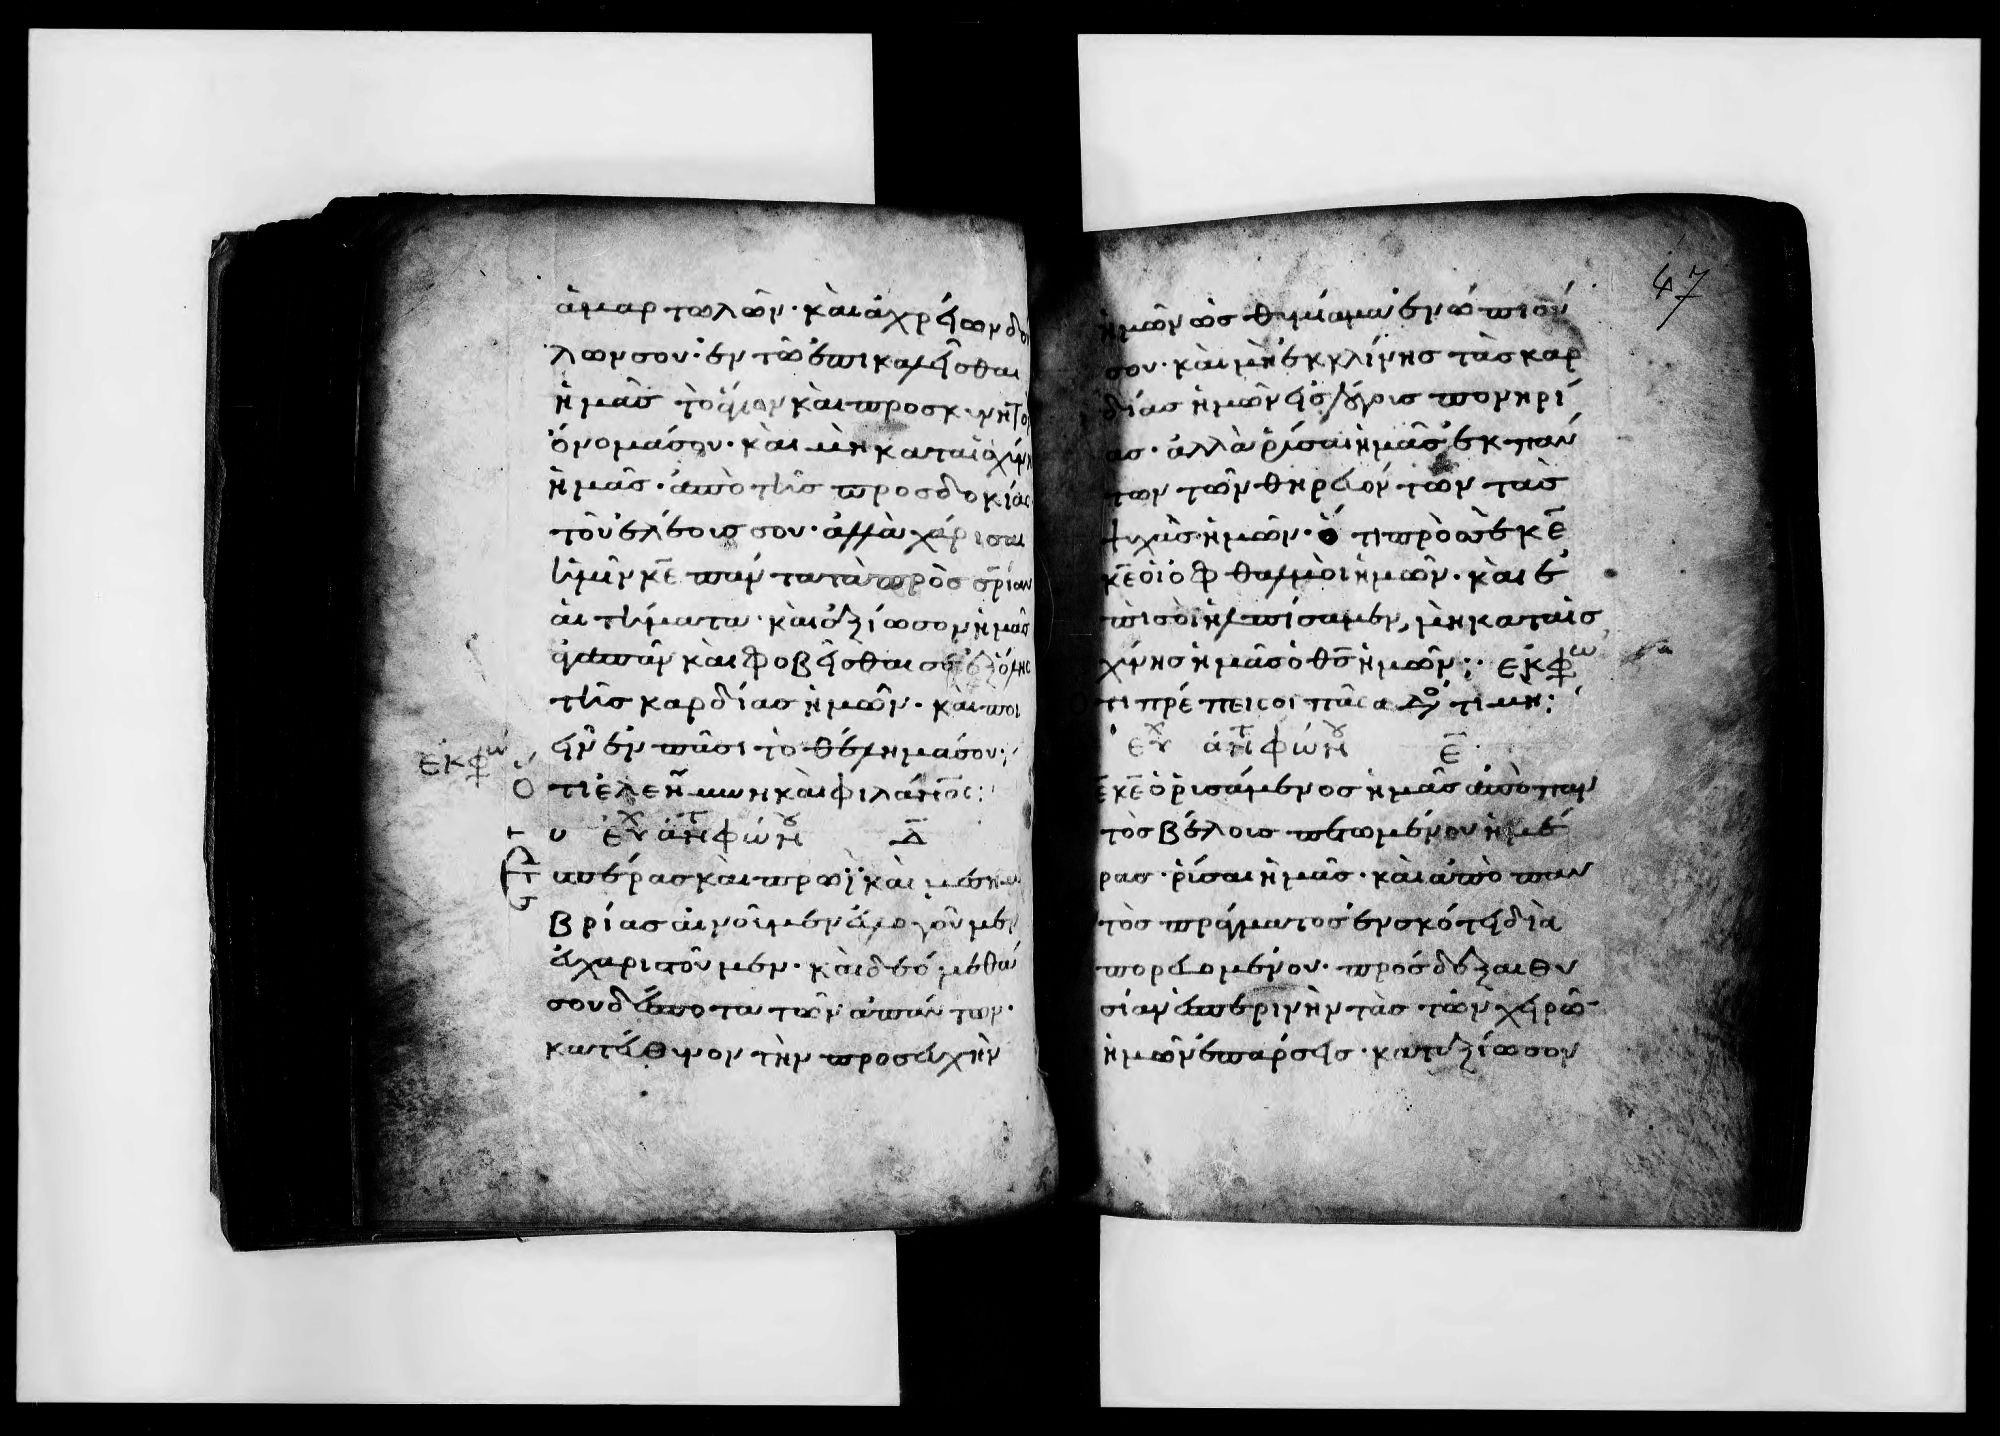 ἁμαρτωλῶν· καὶ ἀχρείων δού
λων σου· ἐν τῶ ἐπικαλεῖσθαι
ἡμᾶς τὸ ἅγιον καὶ προσκυνητὸν
ὄνομά σου· καὶ μὴ καταισχύνῃ
ἡμᾶς· ἀπὸ τῆς προσδοκίας
τοῦ ἐλέους σου· ἀλλὰ χάρισαι
ἡμῖν κε πάντα τὰ πρὸς σρίαν
αἰτήματα· καὶ ἀξίωσον ἡμᾶς
ἀγαπᾶν καὶ φοβεῖσθαι σε ἐξ ὅλης
τῆς καρδίας ἡμῶν· καὶ ποι
εῖν ἐν πᾶσι τὸ θέλημά σου:
ἐκφώ
ὅτι ἐλεήμων καὶ φιλάνος:
εὐχ ἀντιφώνου Δ
ἑσπέρας καὶ πρωῒ καὶ μεσημ
βρίας αἰνοῦμεν εὐλογοῦμεν
εὐχαριστοῦμεν· καὶ δεόμεθά
σου δέσποτα τῶν ἁπάντων·
κατεύθυνον τὴν προσευχὴν
47
ἡμῶν ὡς θυμίαμα ἐνώπιόν
σου· καὶ μὴ ἐκκλίνης τὰς καρ
δίας ἡμῶν εἰς λόγοις πονηρί
ας· ἀλλὰ ῥύσαι ἡμᾶς ἐκ πάν
των τῶν θηρευόντων τὰς
ψυχὰς ἡμῶν· ὅτι πρὸς σὲ κε
κε οἱ ὀφθαλμοὶ ἡμῶν· καὶ ἐ
πὶ σοὶ ἠλπίσαμεν, μὴ καταισ
χύνης ἡμᾶς ὁ θς ἡμῶν: ἐκφω
ὅτι πρέπει σοι πᾶσα δόξ τιμή:
εὐχ ἀντιφώνου Ε
κε κε ὁ ῥυσάμενος ἡμᾶς ἀπὸ παν
τὸς βέλους πετομένου ἡμέ
ρας· ῥύσαι ἡμᾶς· καὶ ἀπὸ παν
τὸς πράγματος ἐν σκότει δια
πορευομένου· πρόσδεξαι θυ
σίαν ἑσπερινὴν τὰς τῶν χειρῶ
ἡμῶν ἐπάρσεις· καταξίωσον